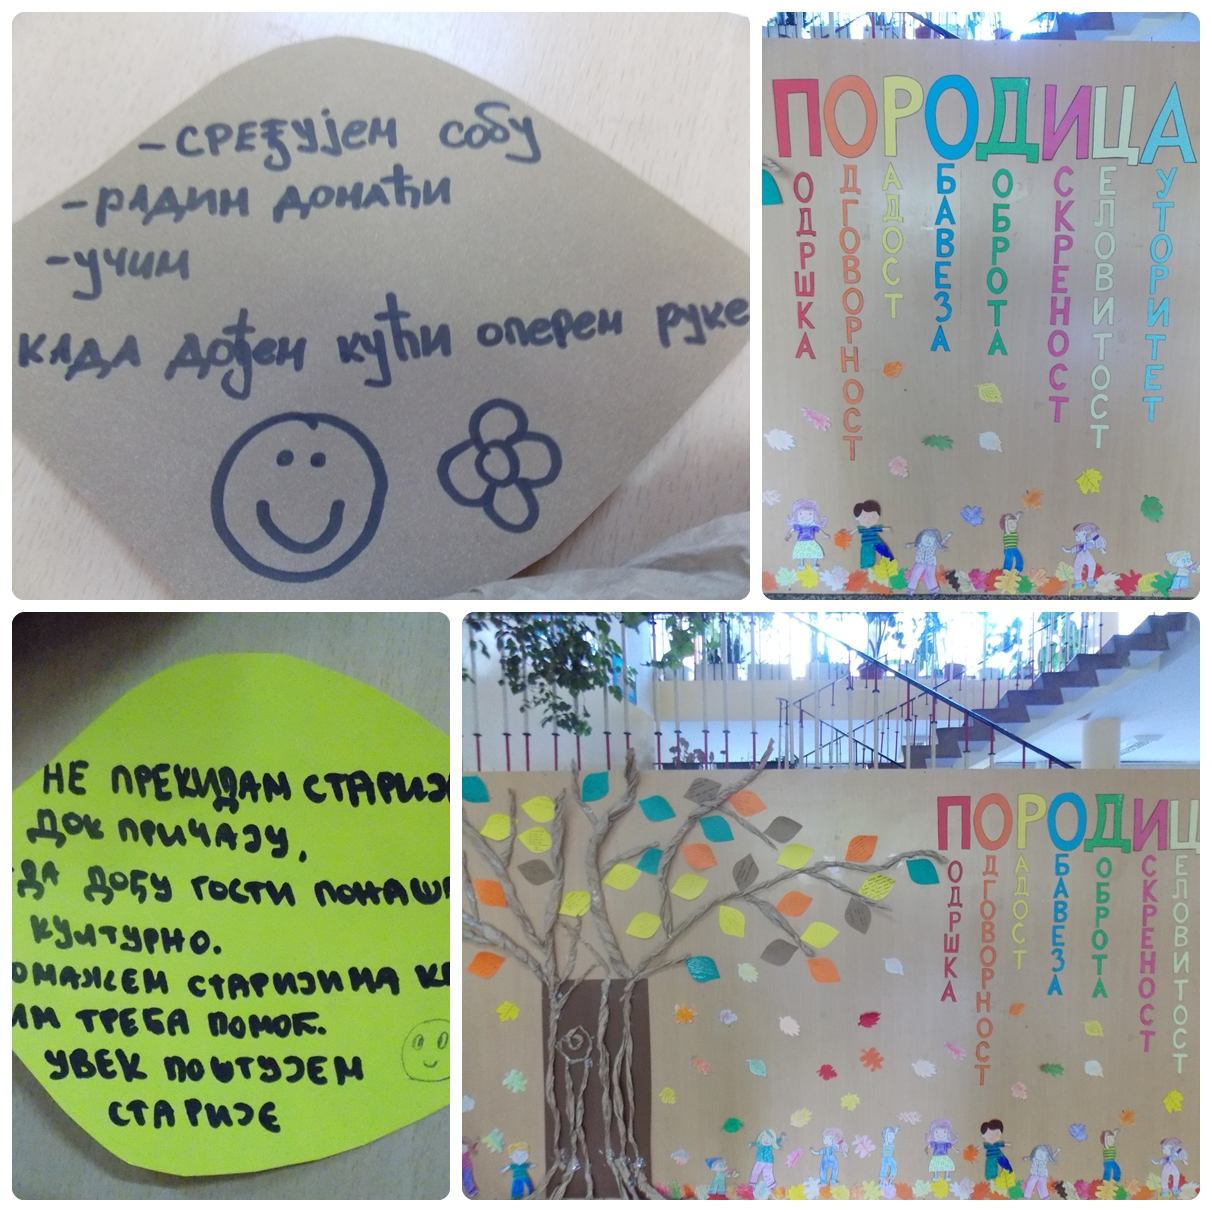 -СРЕЂУЈЕМ СОБУ
-РАДИМ ДОМАЋИ
-УЧИМ
КАДА ДОЂЕМ КУЋИ ОПЕРЕМ РУКЕ
ПОРОДИЦА
ОДРШКА
ДГОВОРНОСТ
АДОСТ
БАВЕЗА
ОБРОТА
СКРЕНОСТ
ЕЛОВИТОСТ
УТОРИТЕТ
НЕ ПРЕКИДАМ СТАРИЈ
ДОК ПРИЧАЈУ,
ДА ДОЂУ ГОСТИ ПОНАШ
КУЛТУРНО.
ОМАЖЕМ СТАРИЈИМА К
ИМ ТРЕБА ПОМОЋ.
УВЕК ПОШТУЈЕМ
СТАРИЈЕ
ПОРОДИЦ
ОДРШКА
ДГОВОРНОСТ
АДОСТ
БАВЕЗА
ОБРОТА
СКРЕНОСТ
ЕЛОВИТОСТ